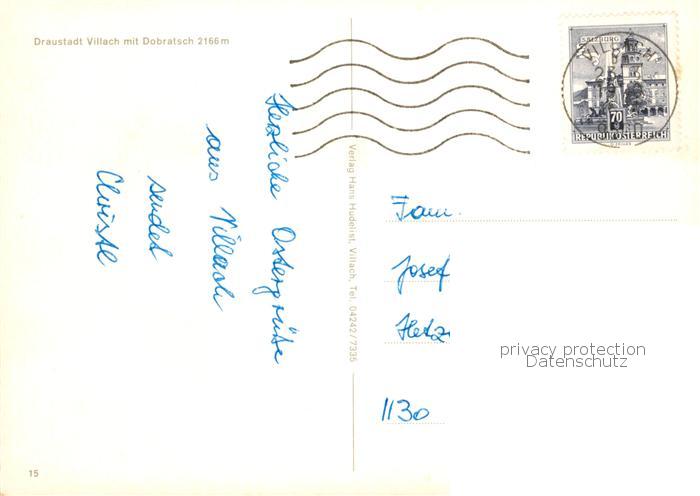 Draustadt Villach mit Dobratsch 2166 m
Herzliche Ostergrüße
aus Villach
sendet
Christl
15
Verlag Hans Hudelist, Villach, Tel. 04242/7335
SALZBURG
VILLACH
70
REPUBLIK ÖSTERREICH
Fam.
Josef
Hetz
1130
privacy protection
Datenschutz